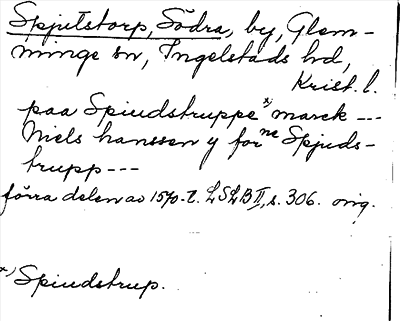 Spjutstorp, Södra, by, Glem-
minge sn, Ingelstads hd,
Krist. l.
paa Spiudstruppe *) marck ---
Niels hanssen y forne Spjuds-
trupp ---
förra delen av 1570-t. LSLB II, s. 306. orig.
*) Spiudstrup.